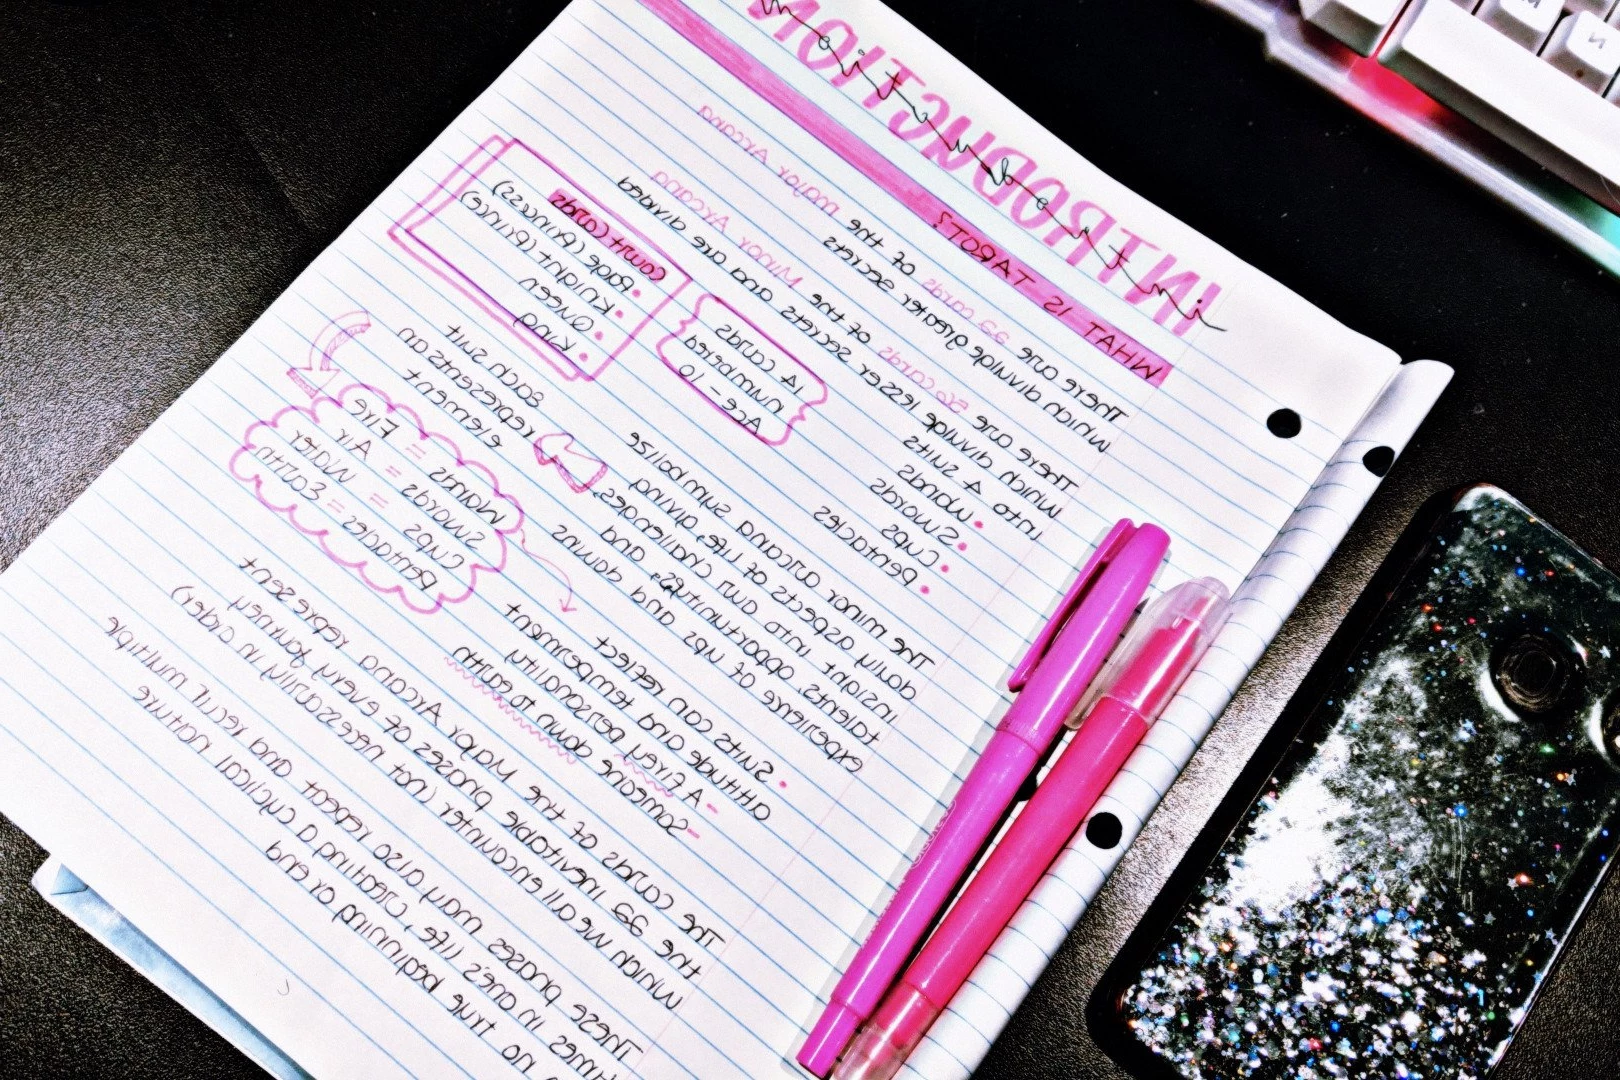 INTRODUCTION
introduction
WHAT IS TAROT?
There are 22 cards of the major Arcana
which divulge greater secrets
There are 56 cards of the Minor Arcana
which divulge lesser secrets and are divided
into 4 suits
• Wands
• Swords
• Cups
• Pentacles
14 cards
numbered
Ace - 10
Court Cards
• Page (princess)
• Knight (prince)
• Queen
• King
The minor arcana symbolize
daily aspects of life, giving
insight into our challenges,
talents, opportunities, and
experience of ups and downs
Each suit
represents an
element
Wands = Fire
Swords = Air
Cups = Water
Pentacles = Earth
• Suits can reflect
attitude and temperment
- A firey personality
- Someone down to earth
The cards of the Major Arcana represent
the 22 inevitable phases of every journey
which we all encounter (not necessarily in order)
These phases may also repeat and recur multiple
times in one's life, creating a cyclical nature
no true beginning or end
M
N